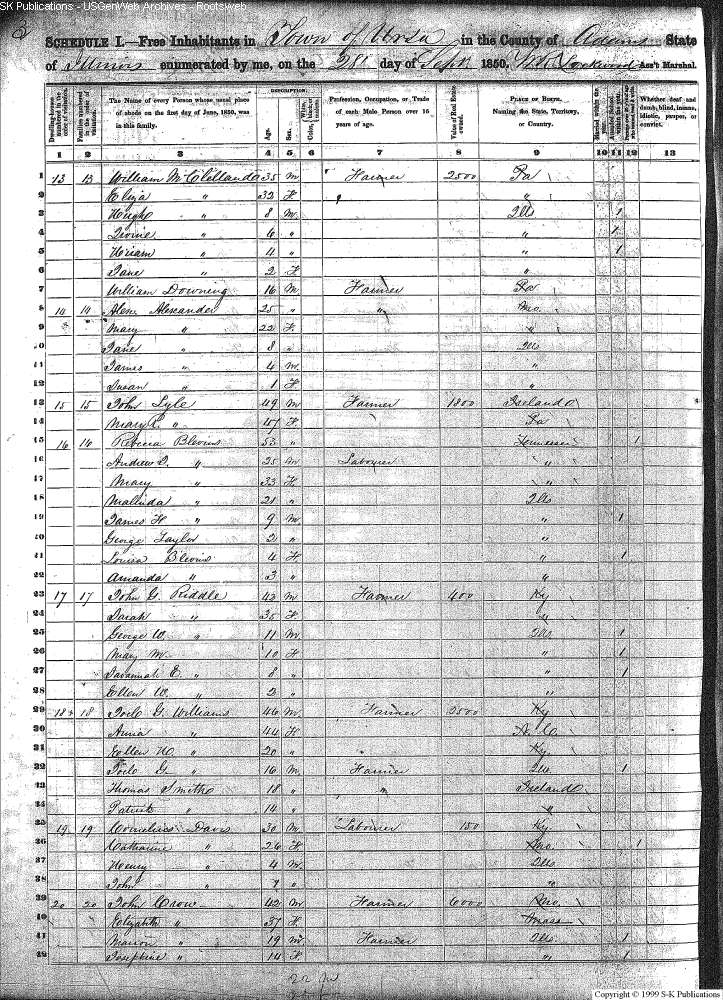 SK Publications - USGenWeb Archives - Rootsweb
SCHEDULE I.—Free Inhabitants in Town of Ursa in the County of Adams State
of Illinois enumerated by me, on the 28 day of Sept 1850. Ass't Marshal.
DESCRIPTION.
Dwelling-houses numbered in the order of visitation. Families numbered in the order of visitation. The Name of every Person whose usual place of abode on the first day of June, 1850, was in this family. Age. Sex. Color, White, black or mulatto. Profession, Occupation, or Trade of each Male Person over 15 years of age. Value of Real Estate owned. PLACE OF BIRTH, Naming the State, Territory, or Country. Married within the year. Attended School within the year. Whether deaf and dumb, blind, insane, idiotic, pauper, or convict.
1 2 3 4 5 6 7 8 9 10 11 12 13
1 13 13 William McClelland 35 M Farmer 2500 Pa
2 Eliza " 32 F "
3 Hugh " 8 M Ills 1
4 Irvine " 6 " " 1
5 Hiram " 4 " " 1
6 Jane " 2 F "
7 William Downing 16 M Farmer Pa
8 14 14 Alex. Alexander 25 " " Mo.
9 Mary " 22 F "
10 Jane " 8 " Ills
11 James " 4 M "
12 Susan " 1 F "
13 15 15 John Lyle 49 M Farmer 1800 Ireland
14 Mary " 47 F Pa
15 16 16 Rebecca Blevins 53 " Tennessee 1
16 Andrew D. " 25 M Labourer "
17 Mary " 33 F "
18 Malinda " 21 " Ills
19 James H " 9 M " 1
20 George Taylor 2 " "
21 Louisa Blevins 4 F " 1
22 Amanda " 3 " "
23 17 17 John G. Riddle 42 M Farmer 400 Ky
24 Sarah " 35 F "
25 George W. " 11 M Ills 1
26 Mary M. " 10 F " 1
27 Savannah E. " 8 " " 1
28 Ellen W. " 2 " "
29 18 18 G. Williams 46 M Farmer 2500 Ky
30 Anna " 44 F
31 " 20 " Ky
32 G " 16 M Farmer Ills 1
33 Thomas Smith 18 " " Ireland
34 Patrick " 14 " "
35 19 19 Cornelius Davis 30 M Labourer 150 Ky.
36 Catharine " 26 F Mo. 1
37 Henry " 4 M Ills
38 John " "
39 20 20 John Crow 42 M Farmer 6000
40 Elizabeth " 37 F Mass
41 Marion " 19 M Farmer Ills 1
42 Josephine " 14 F " 1
22 M
Copyright © 1999 S-K Publications